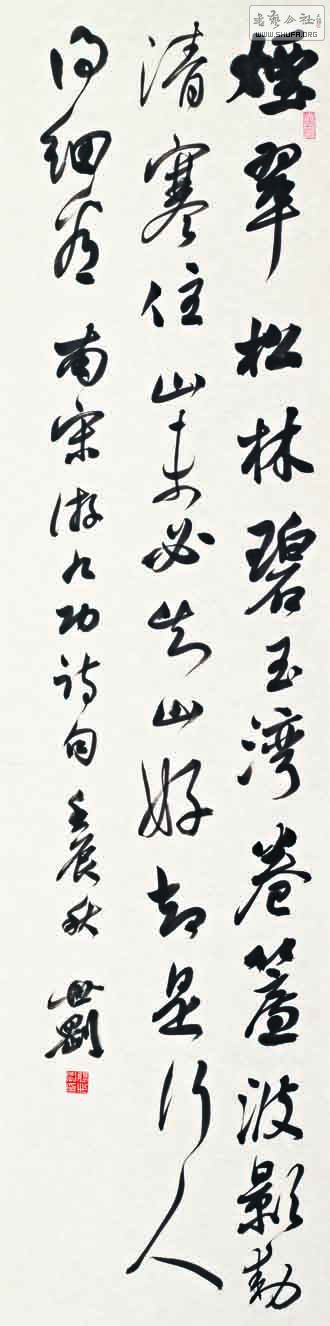 煙翠松林碧玉湾卷簾波影動
清寒住山未必知山好却是行人
得细看 南宋游九功诗句 壬辰秋 世刚
书艺公社
WWW.SHUFA.ORG